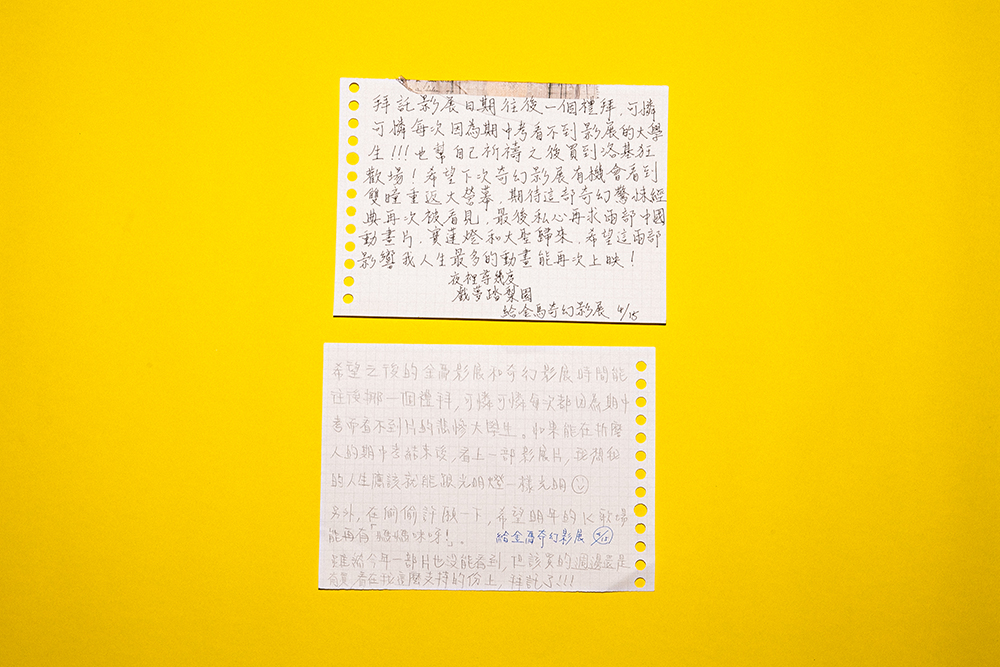 拜託影展日期往後一個禮拜，可憐
可憐每次因為期中考看不到影展的大學
生!!!也幫自己祈禱之後買到洛基狂
歡場！希望下次奇幻影展有機會看到
雙瞳重返大螢幕，期待這部奇幻驚悚經
典再次被看見，最後私心再求兩部中國
動畫片，寶蓮燈和大聖歸來，希望這兩部
影響我人生最多的動畫能再次上映！
夜裡尋幾度
戲夢踏梨園
給金馬奇幻影展 4/15
希望之後的金馬影展和奇幻影展時間能
往後挪一個禮拜，可憐可憐每次都因為期中
考而看不到片的悲慘大學生。如果能在折磨
人的期中考結束後，看上一部影展片，我預祝
的人生應該就能跟光明燈一樣光明
另外，在偷偷許願一下，希望明年的K歌場
能再有「媽媽咪呀！」。 給金馬奇幻影展
雖然今年一部片也沒能看到，但該買的週邊還是
有買，看在我這麼支持的份上，拜託了!!!